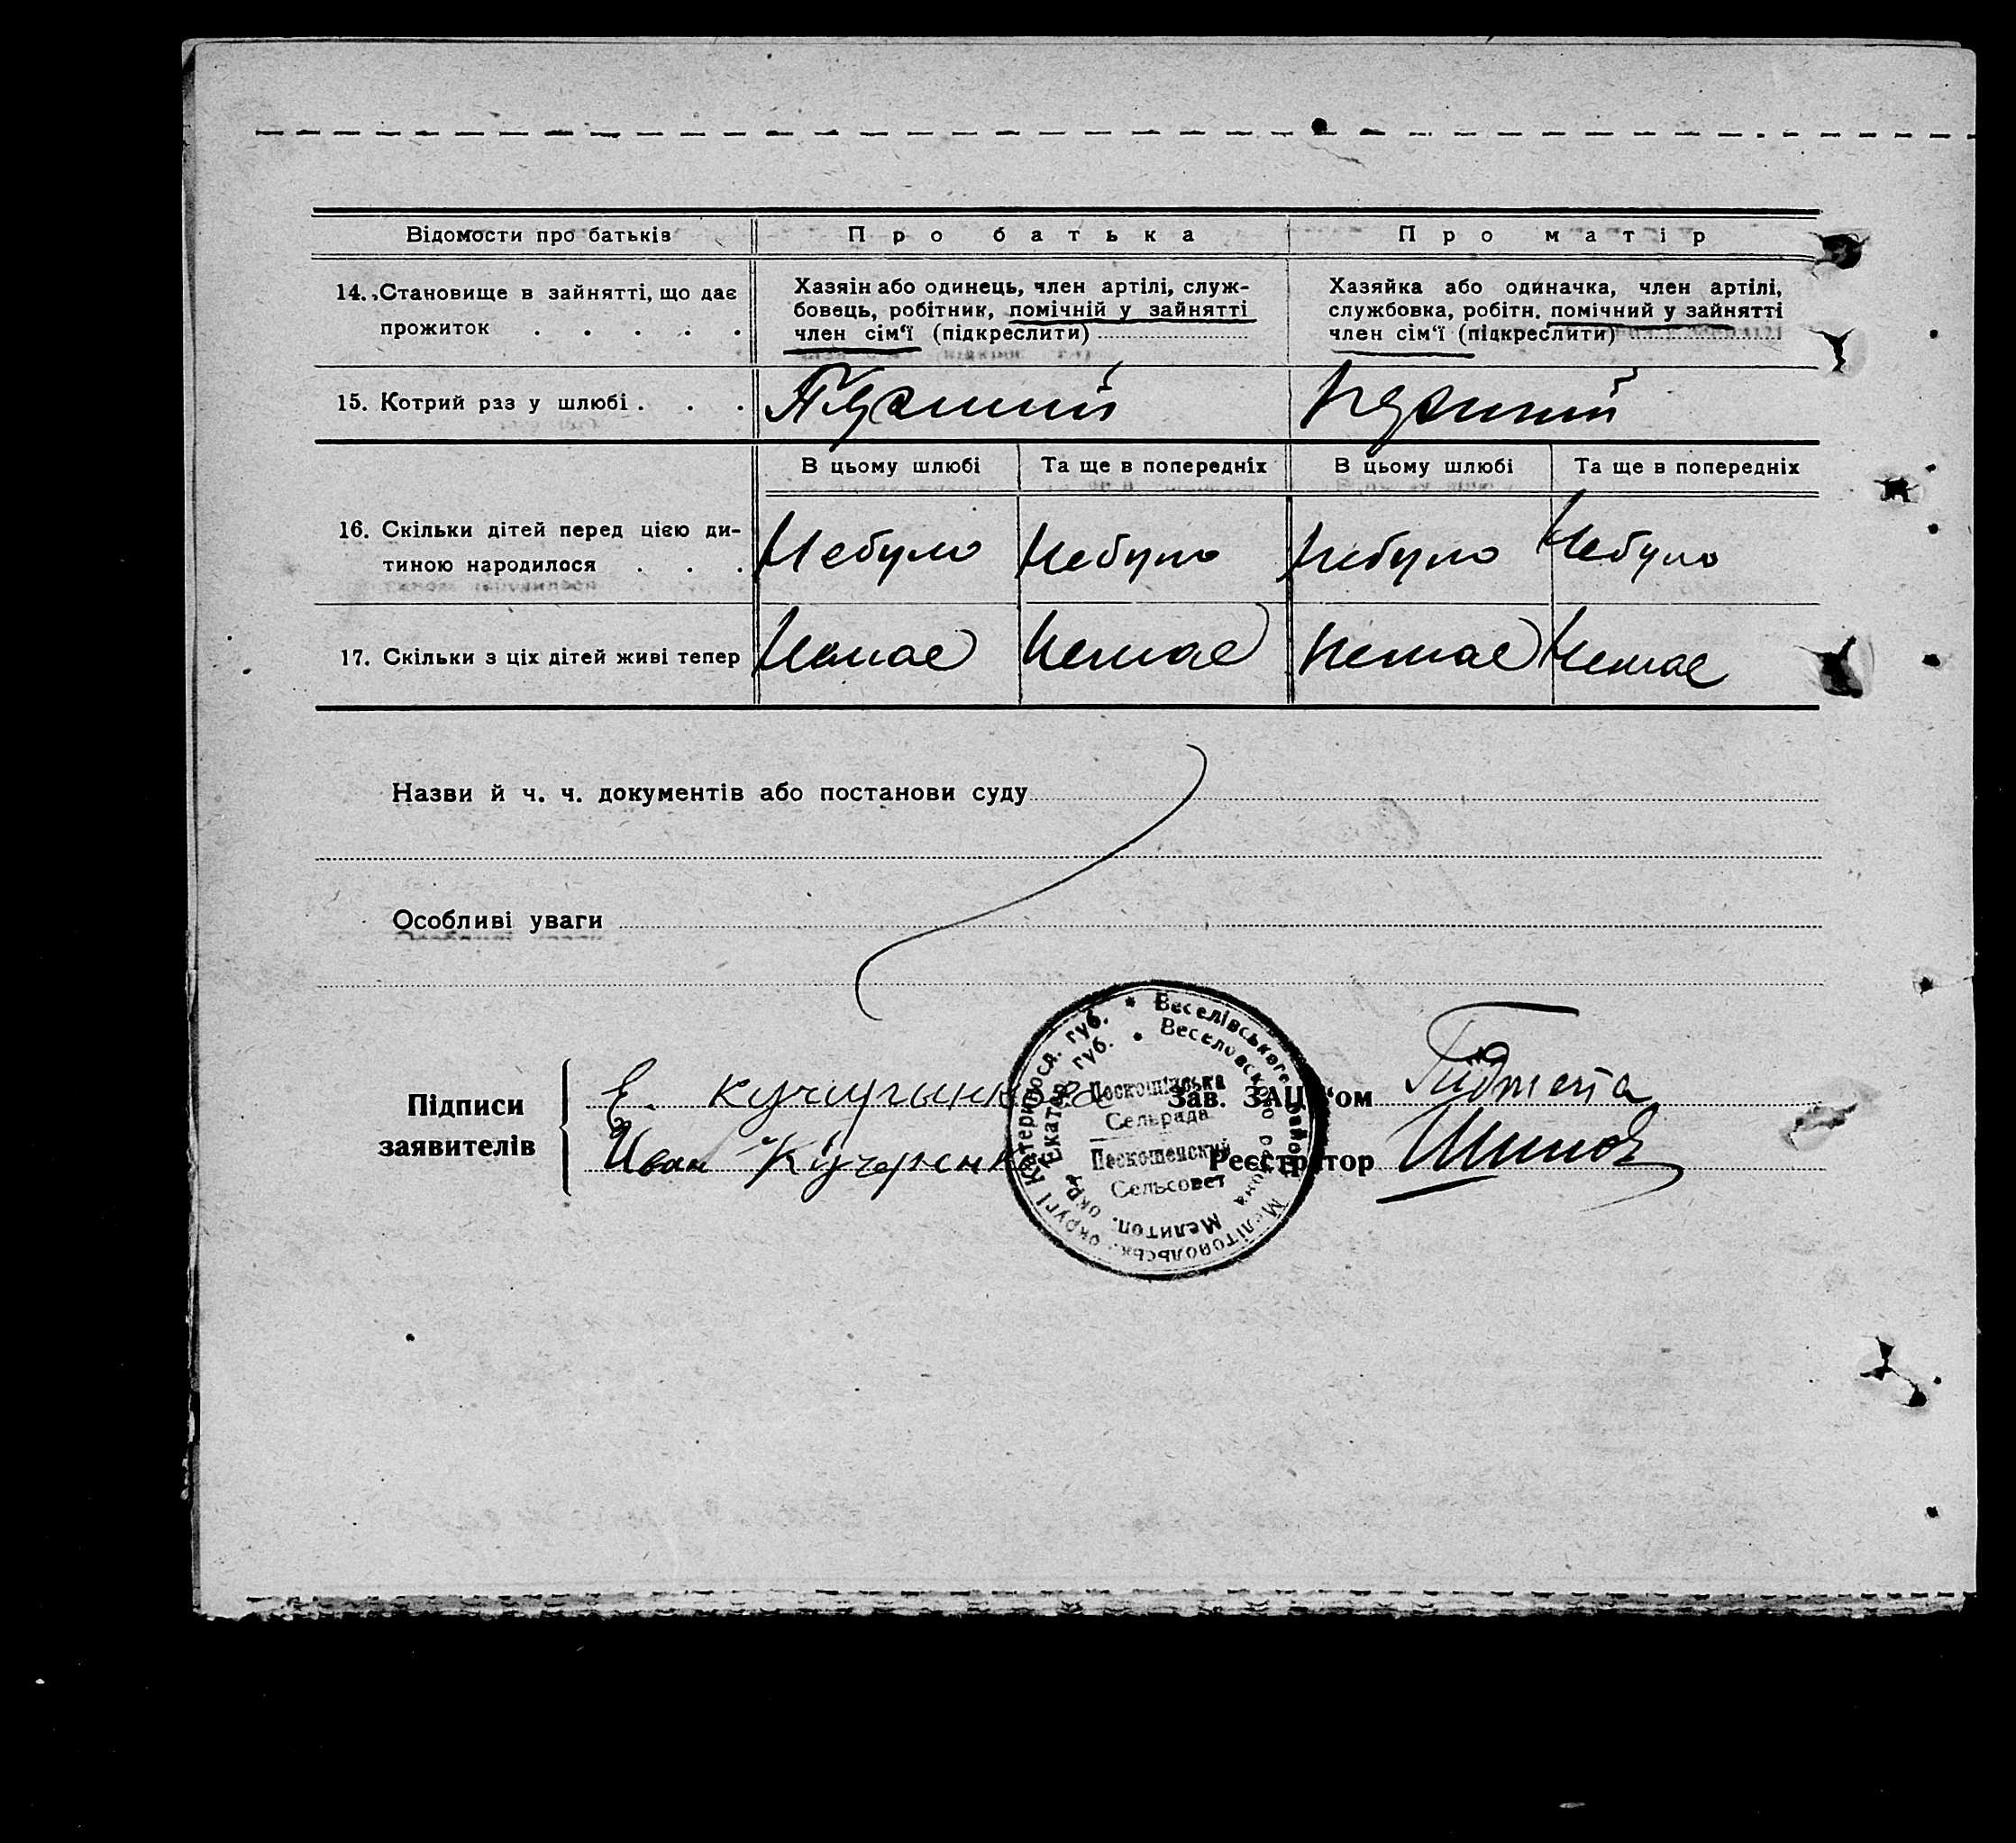 Відомости про батьків
Про батька
Про матір
14. Становище в зайнятті, що дає
прожиток . . . . .
Хазяін або одинець, член артілі, служ-
бовець, робітник, помічній у зайнятті
член сім‘ї (підкреслити)
Хазяйка або одиначка, член артілі,
службовка, робітн. помічний у зайнятті
член сім‘ї (підкреслити)
15. Котрий раз у шлюбі . . .
В цьому шлюбі
Та ще в попередніх
В цьому шлюбі
Та ще в попередніх
16. Скільки дітей перед цією ди-
тиною народилося . . .
Небуло
Небуло
Небуло
Небуло
17. Скільки з ціх дітей живі тепер
Немає
Немає
Немає
Немає
Назви й ч. ч. документів або постанови суду
Особливі уваги
Підписи
заявителів
Е.
Иван Кучеренко
Зав. ЗАЦС‘ом
Реєстратор
Веселівського району Мелітопольськ. округі Катеринося. губ.
Веселовского района Мелитоп. окр. Екатер. губ.
Сельрада
Сельсовет